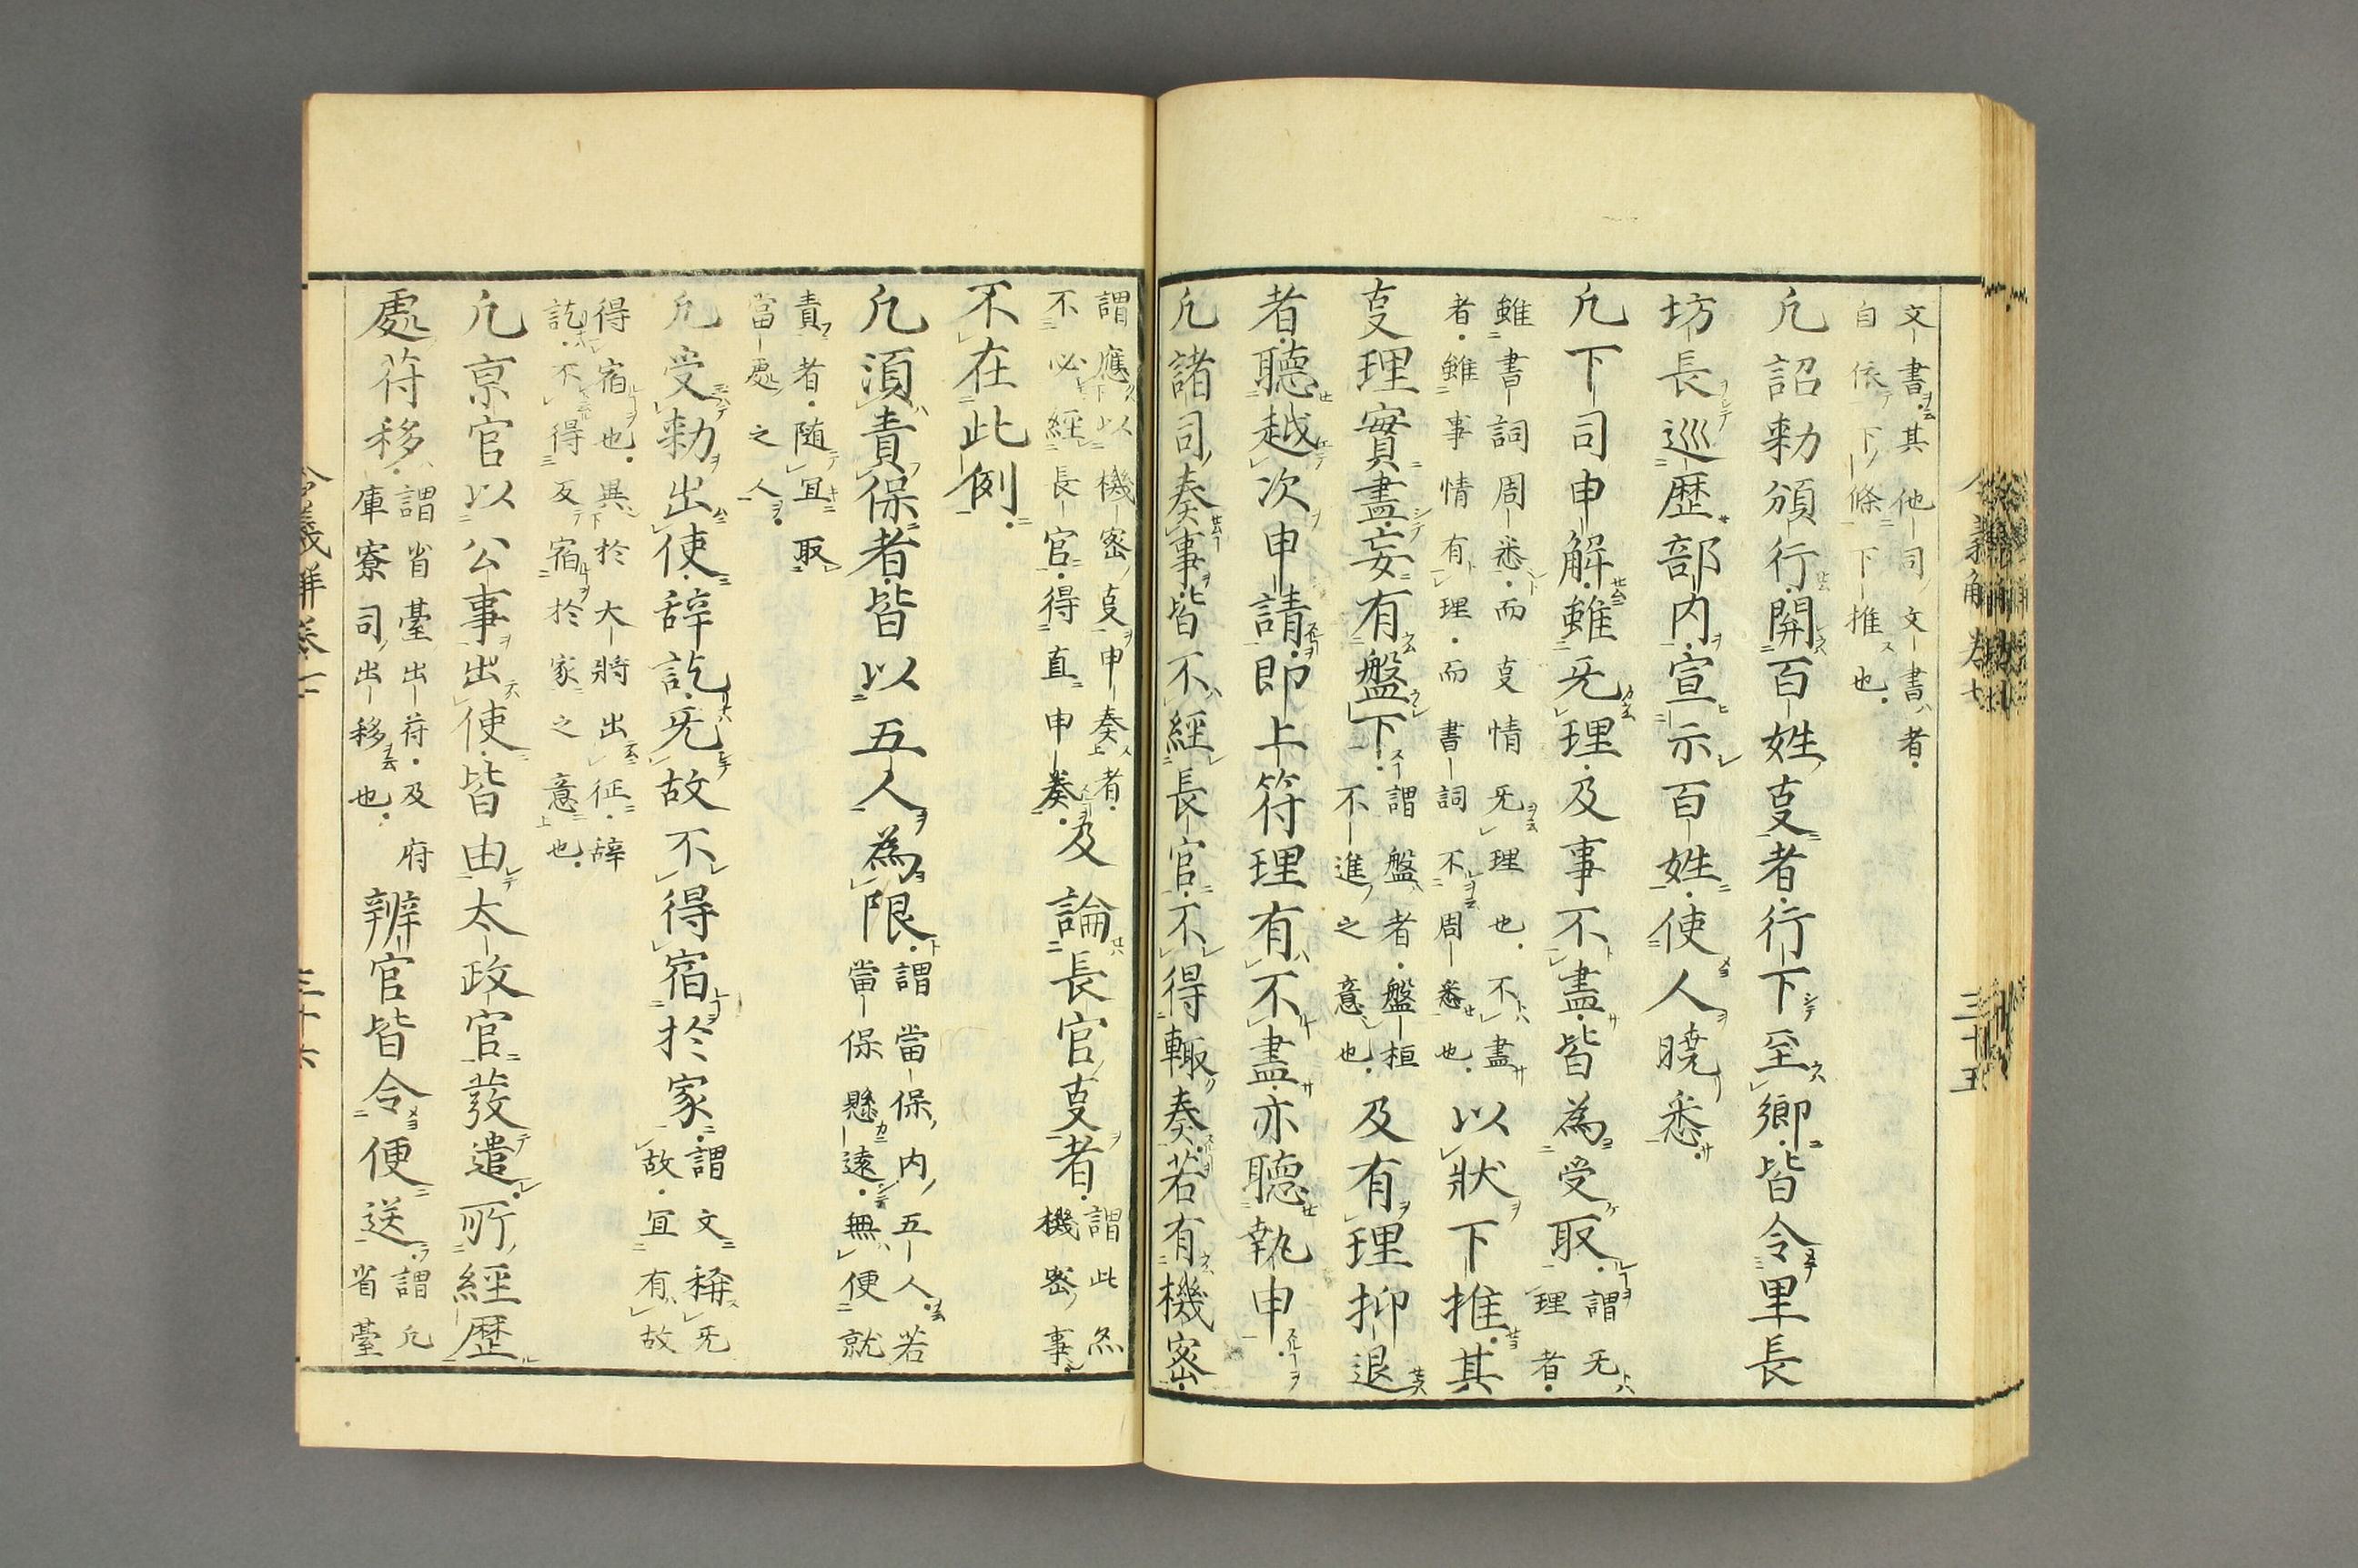 文書其他司文書者
自依下條下推也
凢詔勅頒行開百姓㕝者行下至鄉皆令里長
坊長巡歷部内宣示百姓使人曉悉
凢下司申解雖无理及事不盡皆為受取
謂无
理者
雖書詞周悉而㕝情无理也不盡
者雖事情有理而書詞不周悉也
以狀下推其
㕝理實盡妄有盤下
謂盤者盤桓
不進之意也
及有理抑退
者聽越次申請即上符理有不盡亦聽執申
凢諸司奏事皆不經長官不得輙奏若有機密
謂應以機密㕝申奏者
不必經長官得直申奏
及論長官㕝者
謂此
機密事
不在此例
凢須責保者皆以五人為限
謂當保内五人若
當保懸遠無便就
責者随冝取
當處之人
凢受勅出使辞訖无故不得宿於家
謂文稱无
故冝有故
得宿也異於大將出征辞
訖不得反宿於家之意也
凢京官以公事出使皆由太政官發遣所經歷
處符移
謂省臺出符及府
庫寮司出移也
辨官皆令便送
謂凢
省臺
三十五
三十六